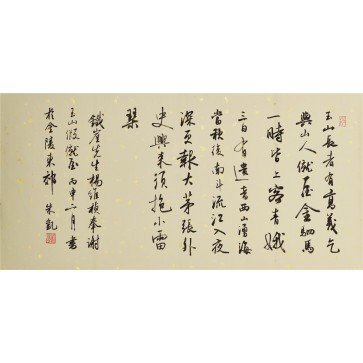 玉山長者有高義乞
與山人僦屋金駟馬
一時皆上客青娥
三日有遺音西山湧海
當秋後南斗流江入夜
深更報大茅張外
史興來須抱小雷
琴
鐵崖先生楊維楨奉謝
玉山假僦屋丙申二月書
於金陵東郊 朱凱